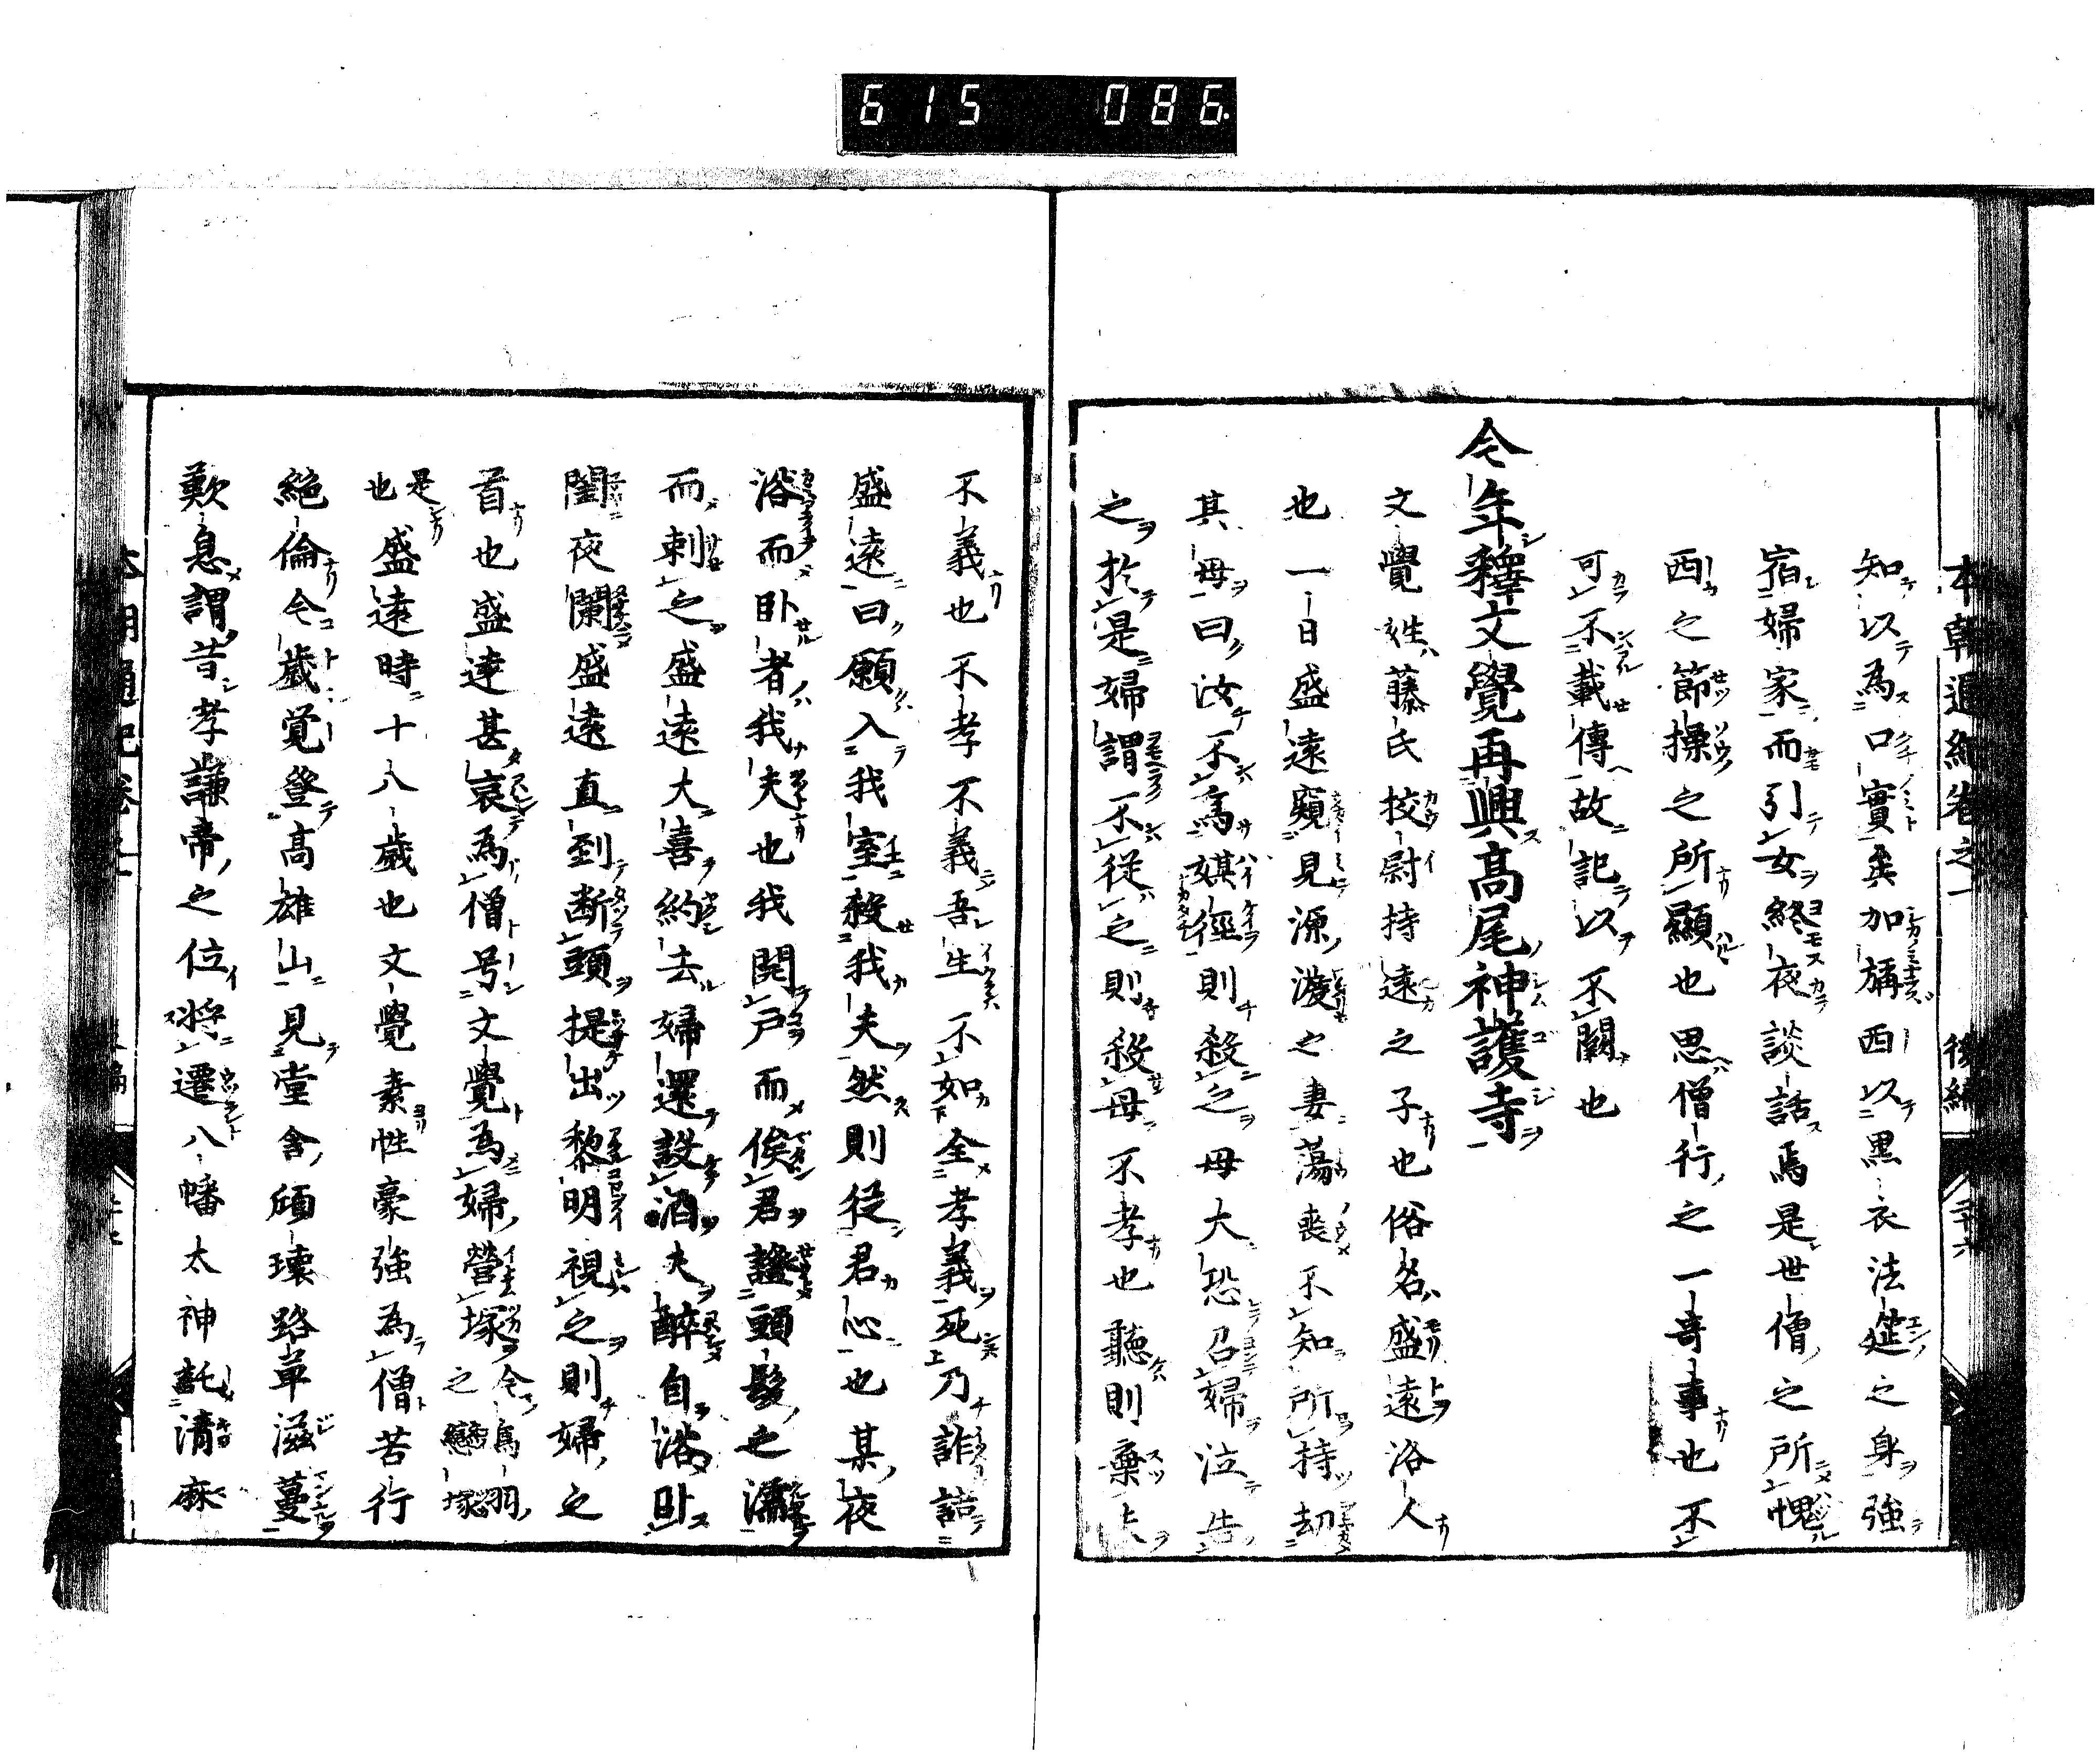 615 086.
本朝通紀卷之一 後編 二十六
知以為口實矣加旃西以黒衣法筵之身強
宿婦家而引女終夜談話焉是世僧之所愧
西之節操之所顯也思僧行之一奇事也不
可不載傳故記以不闕也
今年釋文覺再興高尾神護寺
文覺姓藤氏挍尉持遠之子也俗名盛遠洛人
也一日盛遠窺見源渡之妻蕩喪不知所持刧
其母曰汝不為媒徑則殺之母大恐召婦泣告
之於是婦謂不從之則殺母不孝也聽則棄夫
不義也不孝不義吾生不如全孝義死乃詐詰
盛遠曰願入我室殺我夫然則從君心也某夜
浴而卧者我夫也我開戸而俟君證頭髮之濡
而刺之盛遠大喜約去婦還設酒夫醉自浴卧
閨夜闌盛遠直到断頭提出黎明視之則婦之
首也盛遠甚哀為僧号文覺為婦營塚今鳥羽之戀塚
是也盛遠時十八歳也文覺素性豪強為僧苦行
絶倫今歳覚登高雄山見堂舎頽壊路草滋蔓
歎息謂昔孝謙帝之位将遷八幡太神託清麻
本朝通紀卷之一